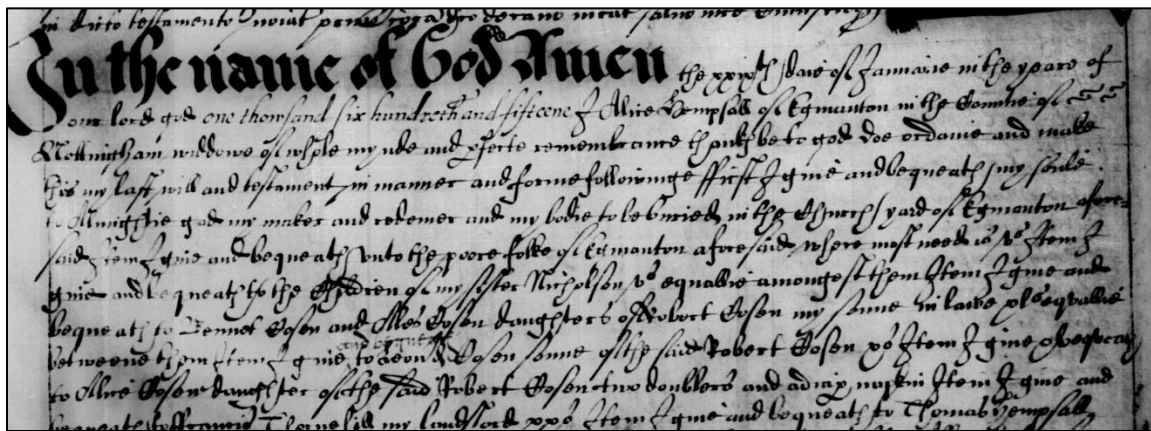 in dicto testamento
In the name of God Amen the xxixth daie of Januarie in the yeare of
our lord god one thowsand six hundreth and fifteene I Alice Hempsall of Egmanton in the Countie of
Nottingham widdowe of whole mynde and perfecte remembrance thankes be to god doe ordaine and make
this my last will and testament in manner and forme followinge ffirst I give and bequeath my soule
to Almightie god my maker and redemer and my bodie to be buried in the Church yard of Egmanton afore-
said Item I give and bequeath unto the poore folke of Egmanton aforesaid where most need is vs Item I
give and bequeath to the Children of my sister Nicholson vs equallie amongest them Item I give and
bequeath to Bennet Cosen and Cosen daughters of Robert Cosen my sonne in lawe equallie
betweene them Item I give and bequeath to Cosen sonne of the said Robert Cosen xs Item I give & bequeath
to Alice Cosen daughter of the said Robert Cosen two doublers and a napkin Item I give and
bequeath to my landlord Item I give and bequeath to Thomas Hempsall